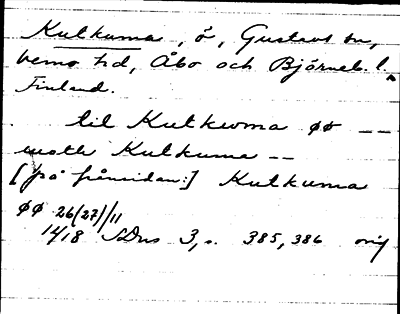 Kulkuma, ö, Gustavs sn,
Vemo hd, Åbo och Björneb. l.
Finland.
til Kulkuma øø --
Kulkuma --
[på frånsidan:] Kulkuma
øø 26(27)/11
1418 SDns 3, s. 385, 386 orig